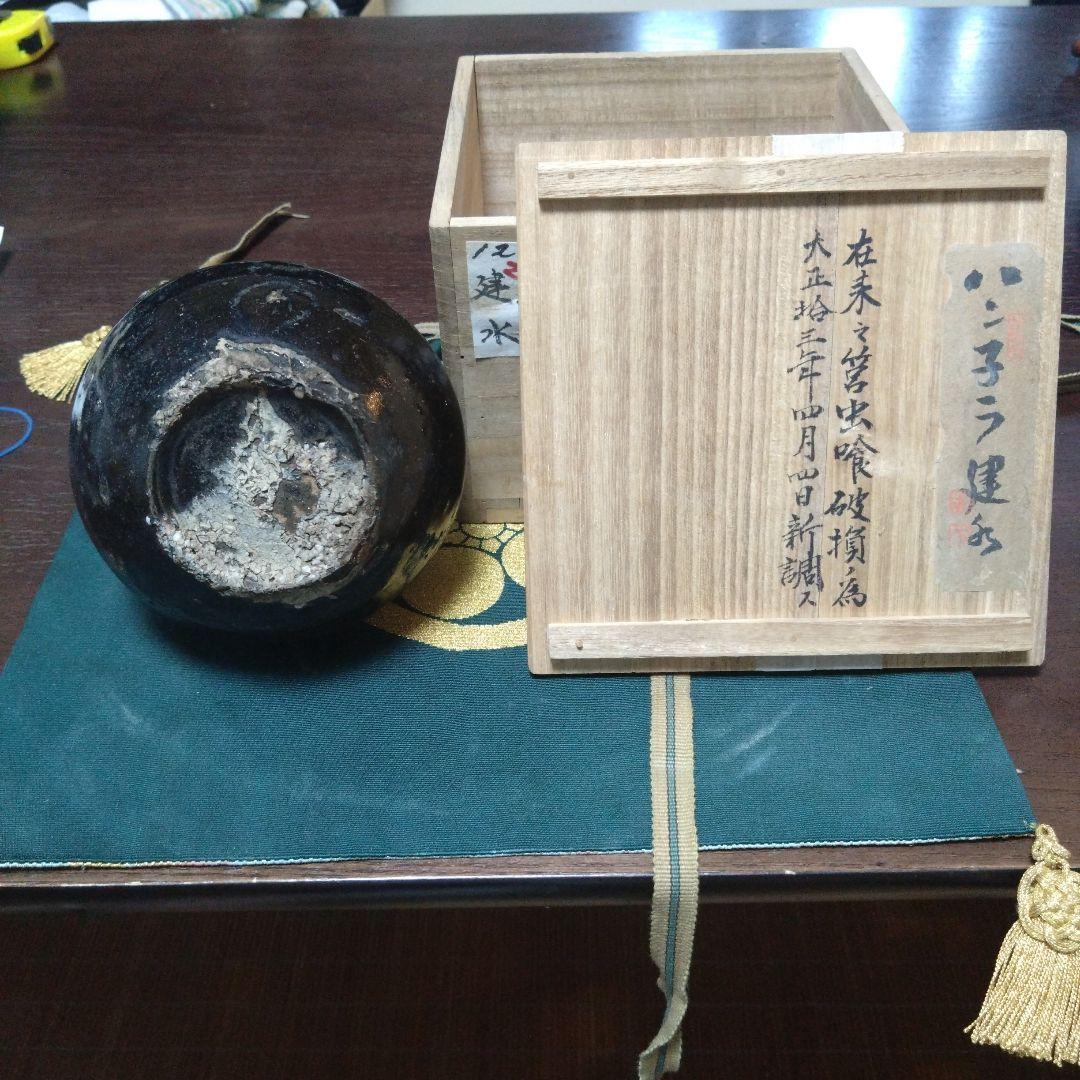 ハンネラ建水
在来之筥虫喰破損ノ為
大正拾三年四月四日新調ス
建水